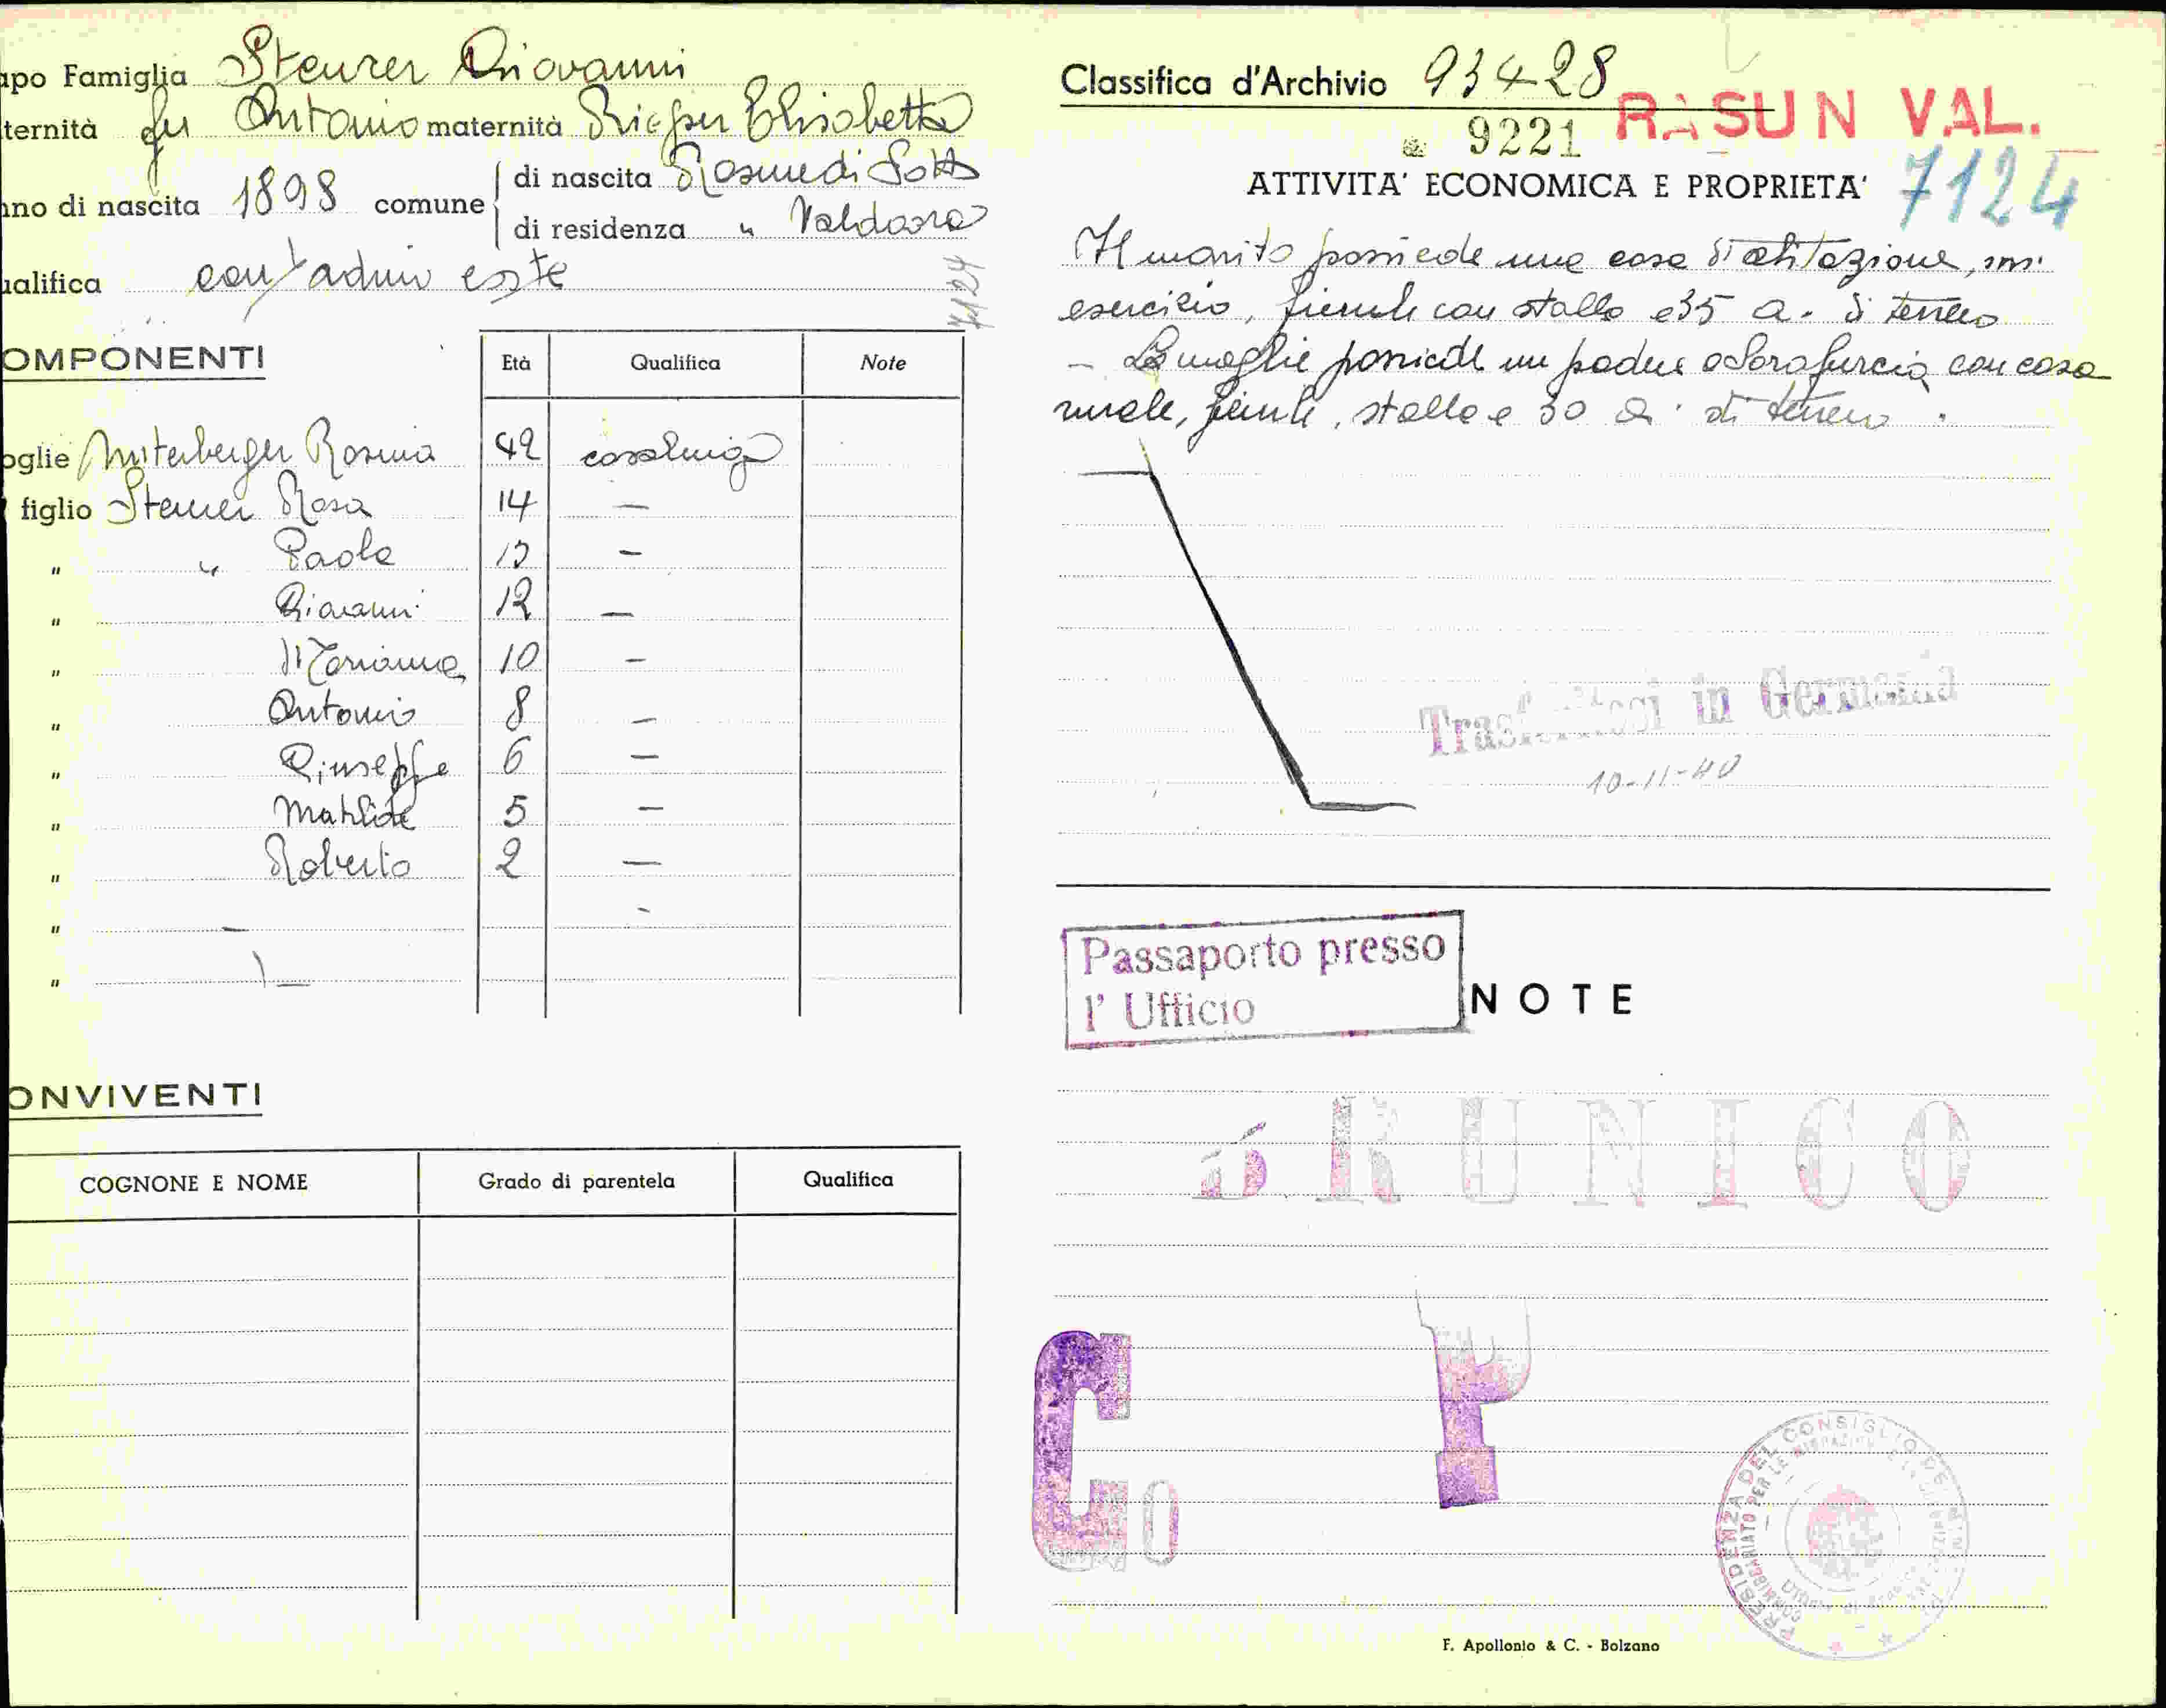 apo Famiglia Steurer Giovanni
ternità fu Antonio maternità Rieper Elisabetta
nno di nascita 1898 comune di nascita Rasun di Sotto
di residenza " Valdaora
ualifica contadino oste
7124
OMPONENTI Età Qualifica Note
oglie Miterberger Rosina 42 casalinga
figlio Steurer Rosa 14 —
" " Paola 13 —
" Giovanni 12 —
" Marianna 10 —
" Antonio 8 —
" Giuseppe 6 —
" Matilde 5 —
" Roberto 2 —
" — -
" —
ONVIVENTI
COGNONE E NOME Grado di parentela Qualifica
Classifica d'Archivio 93428
9221 RASUN VAL.
ATTIVITA' ECONOMICA E PROPRIETA' 7124
Il marito possiede una casa d'abitazione, un
esercizio, fienile con stalla e 35 a. di terreno
– La moglie possiede un podere a Sorafurcia con casa
rurale, fienile, stalla e 30 a. di terreno.
Trasferitosi in Germania
10-11-40
Passaporto presso
l' Ufficio
NOTE
BRUNICO
G P
O
PRESIDENZA DEL CONSIGLIO DEI
F. Apollonio & C. - Bolzano